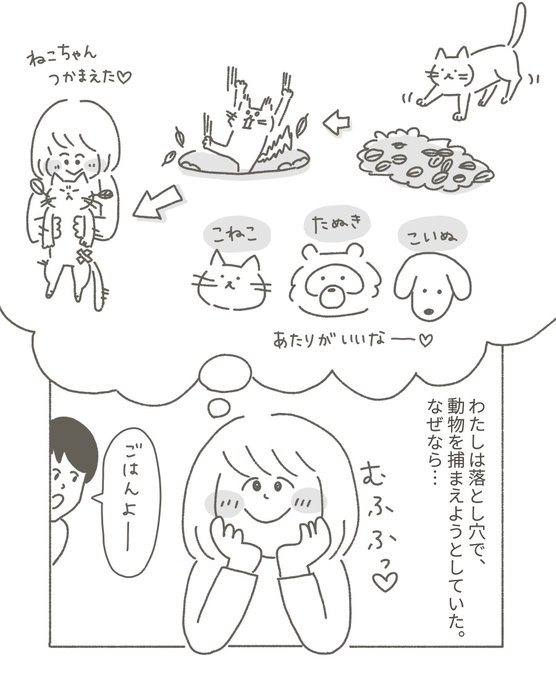 ねこちゃん
つかまえた♡
こねこ
たぬき
こいぬ
あたりがいいなー♡
わたしは落とし穴で、
動物を捕まえようとしていた。
なぜなら…
むふふっ♡
ごはんよー